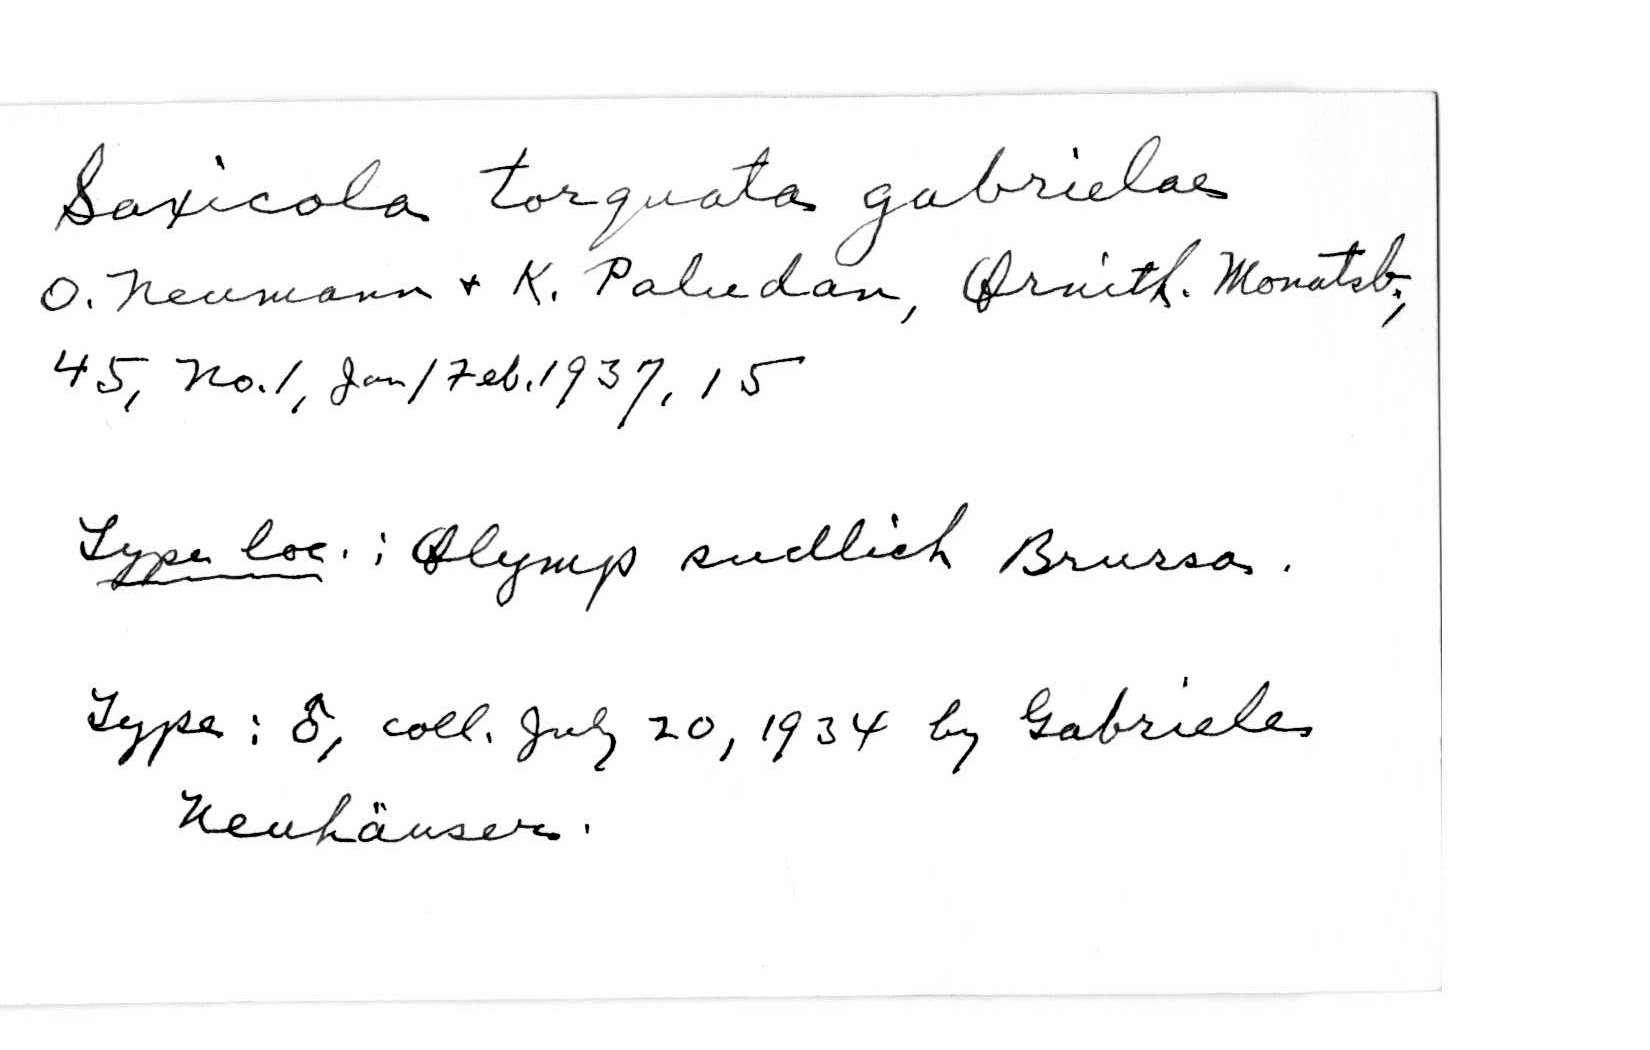 Saxicola torquata gabrielae
O. Neumann + K. Paludan, Ornith. Monatsb.,
45, No. 1, Jan/Feb. 1937, 15
Type loc.: Olymp sudlich Brussa.
Type: ♂, coll. July 20, 1934 by Gabriele
Neuhäuser.